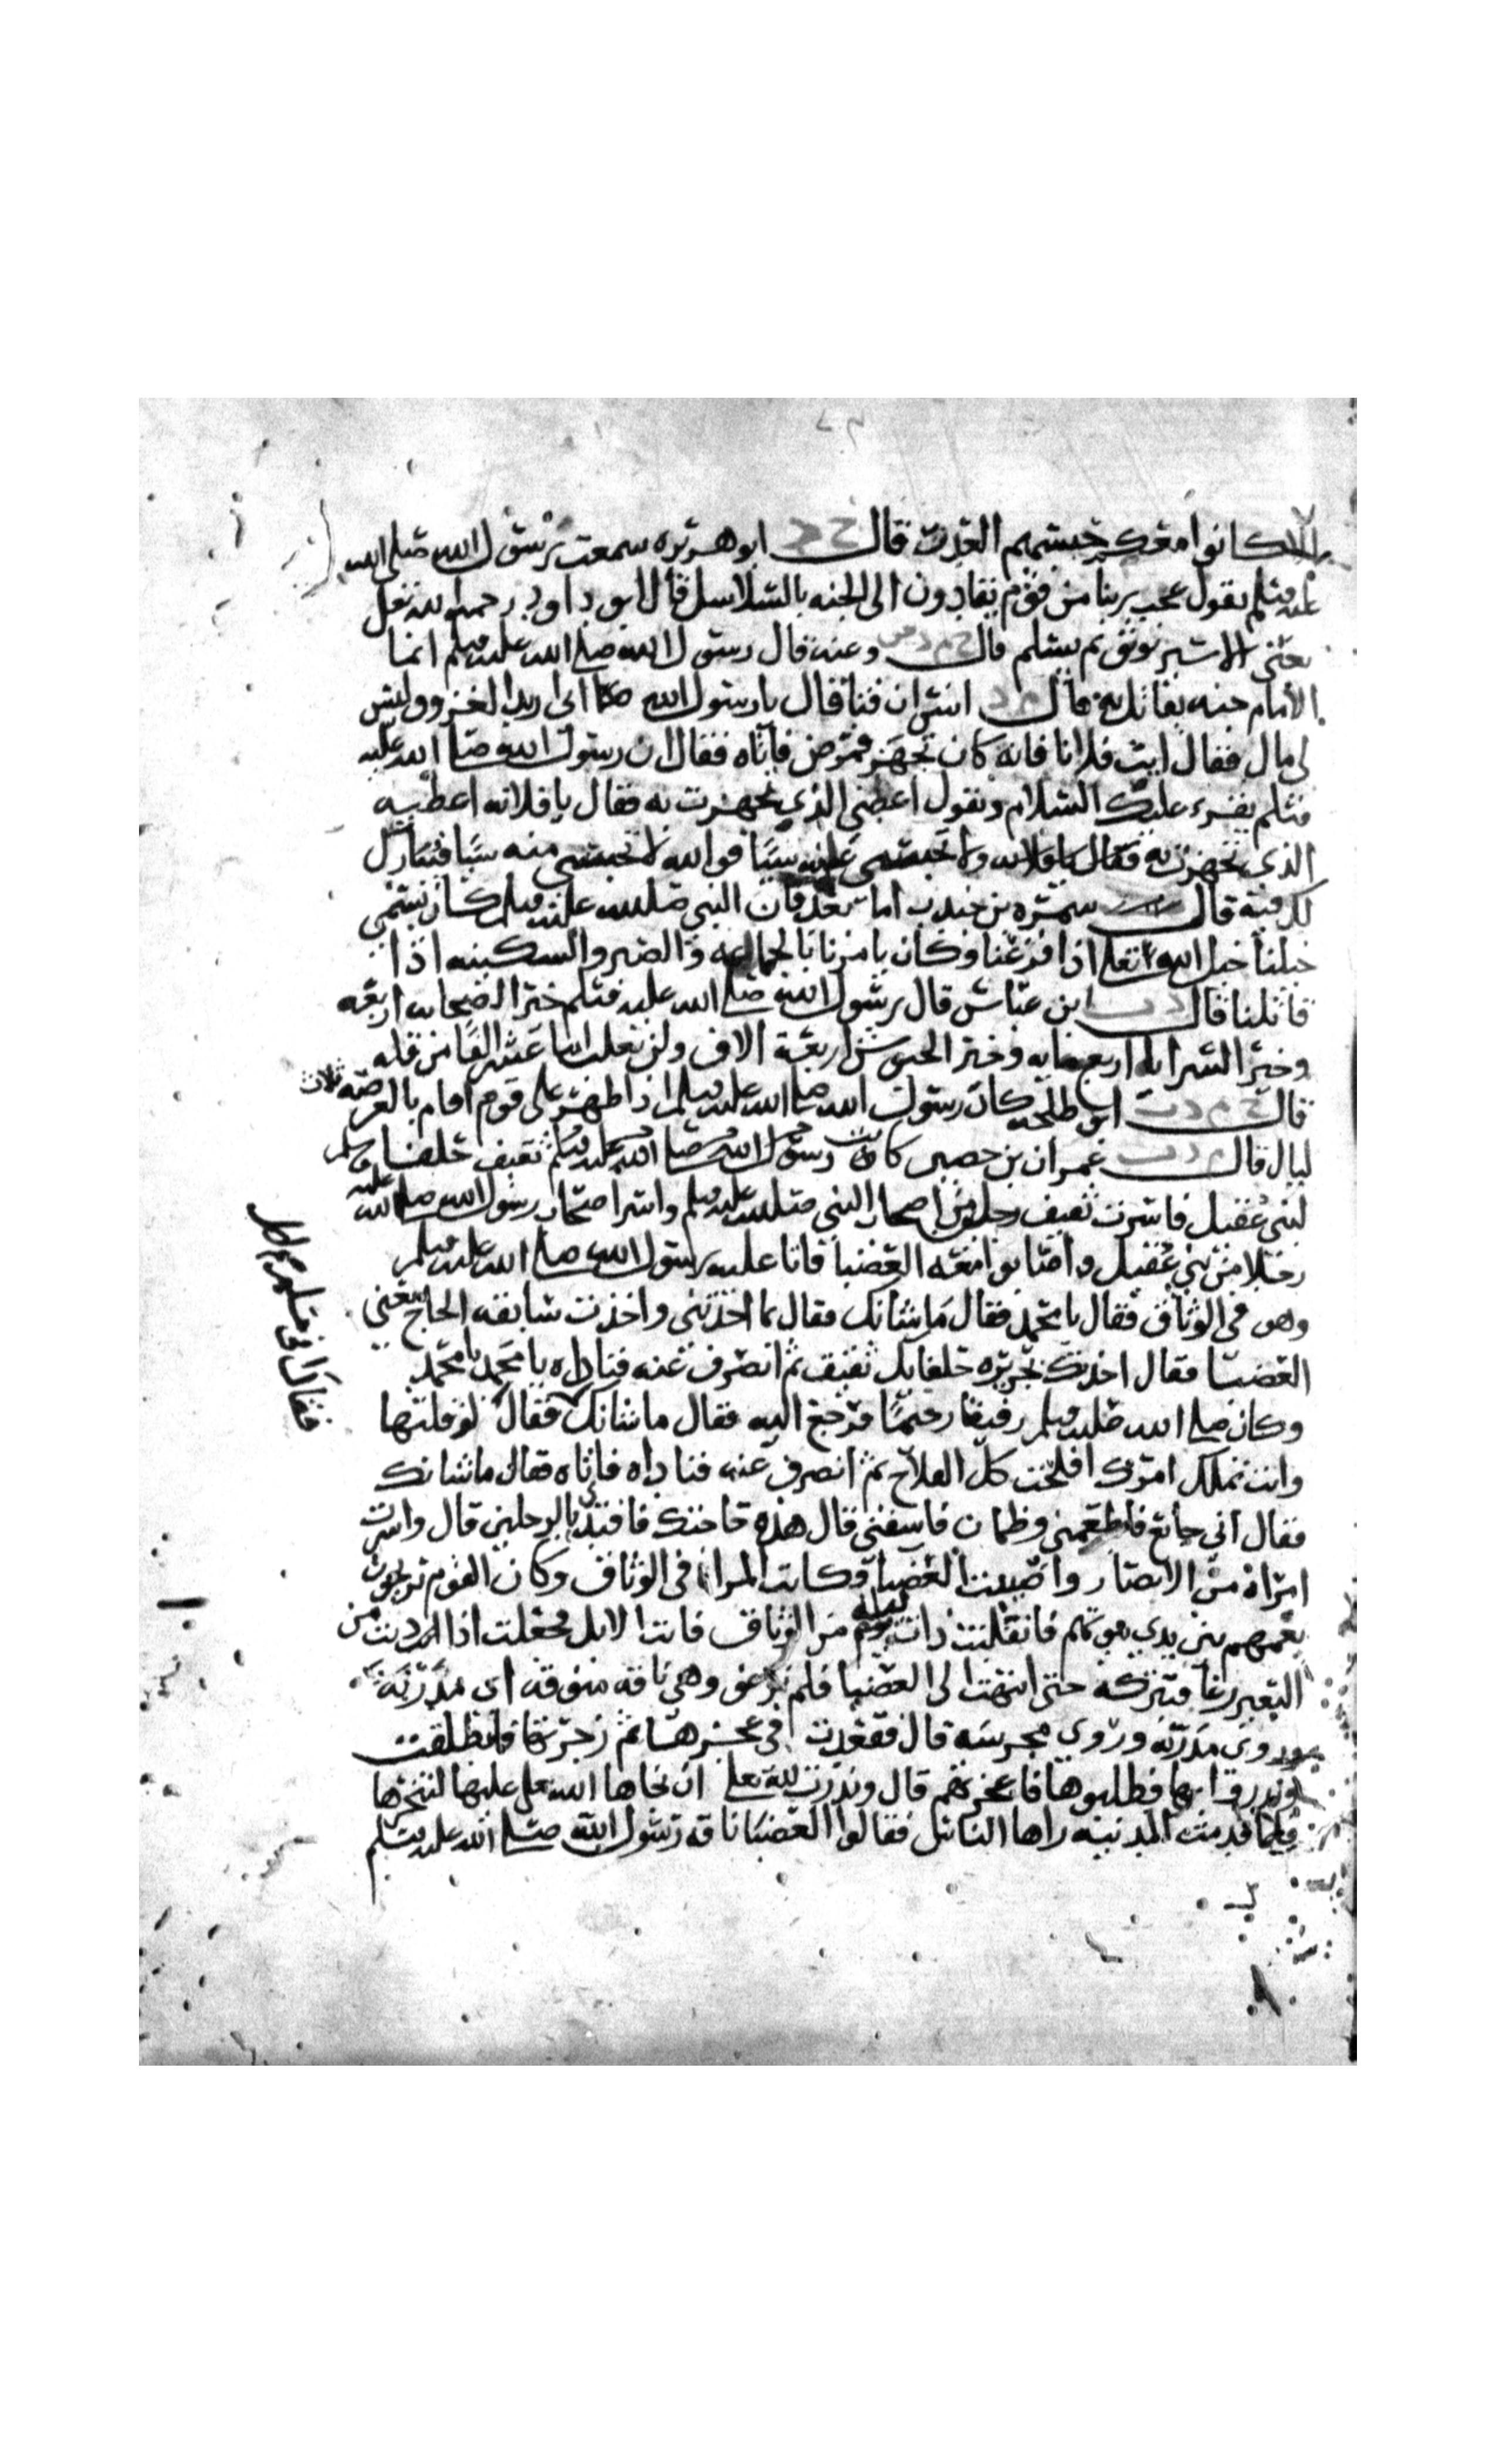 الا كانوا معكم حبسهم العذر قال خ د ابو هريره سمعت رسول الله صلى الله
عليه وسلم يقول عجب ربنا من قوم يقادون الى الجنه بالسلاسل قال ابو داود رحمه الله تعلى
يعنى الاسير يوثق ثم يسلم قال خ م د س وعنه قال رسول الله صلى الله عليه وسلم انما
الامام جنه يقاتل به قال م د انس ان فتا قال يا رسول الله انى اريد الغزو وليس
لى مال فقال ايت فلانا فانه كان تجهز فمرض فاتاه فقال ان رسول الله صلى الله عليه
وسلم يقرء عليك السلام ويقول اعطنى الذي تجهزت به فقال يا فلانه اعطيه
الذي تجهزت به فقال يا فلانه ولا تحبسى عنه شيا فوالله لا تحبسى منه شيا فيبارك
لك فيه قال سمره بن جندب اما بعد فان النبي صلى الله عليه وسلم كان يسمي
خيلنا خيل الله تعلى اذا فزعنا وكان يامرنا بالجماعه والصبر والسكينه اذا
قاتلنا قال د ت ابن عباس قال رسول الله صلى الله عليه وسلم خير الصحابه اربعه
وخير السرايا اربع مايه وخير الجيوش اربعة الاف ولن يغلب اثنا عشر الفا من قله
قال خ م د ت ابو طلحه كان رسول الله صلى الله عليه وسلم اذا ظهر على قوم اقام بالعرصه ثلاث
ليال قال م د ت عمران بن حصين كانت ثقيف حلفا
لبنى عقيل فاسرت ثقيف رجلين من اصحاب النبي صلى الله عليه وسلم واسر اصحاب رسول الله صلى الله عليه
رجلا من بني عقيل واصابوا معه العضبا فاتا عليه رسول الله صلى الله عليه وسلم
وهو فى الوثاق فقال يا محمد فقال ما شانك فقال بما اخذتنى واخذت سابقه الحاج يعنى
العضبا فقال اخذتك بجريره حلفايك ثقيف ثم انصرف عنه فناداه يا محمد يا محمد
وكان صلى الله عليه وسلم رفيقا رحيما فرجع اليه فقال ما شانك فقال لو قلتها
وانت تملك امرك افلحت كل الفلاح ثم انصرف عنه فناداه فاتاه فقال ما شانك
فقال انى جايع فاطعمنى وظمان فاسقنى قال هذه حاجتك فافتدي بالرجلين قال واسرت
امراة من الانصار واصيبت العضبا وكانت المراة فى الوثاق وكان القوم يريحون
نعمهم بين يدي بيوتهم فانفلتت ذات ليله من الوثاق فاتت الابل فجعلت اذا دنت من
البعير رغا فتتركه حتى انتهت الى العضبا فلم ترغ وهى ناقه منوقه اى مدربه
وروى مدربه وروى مجرسه قال فقعدت فى عجزها ثم زجرتها فانطلقت
ونذروا بها فطلبوها فاعجزتهم قال ونذرت لله تعلى ان نجاها الله تعلى عليها لتنحرنها
فلما قدمت المدينه راها الناس فقالوا العضبا ناقه رسول الله صلى الله عليه وسلم